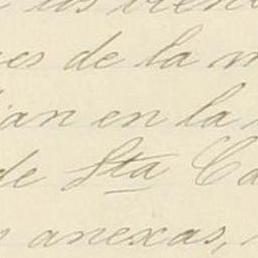 es de la
an en la
de Sta Ca
anexas,